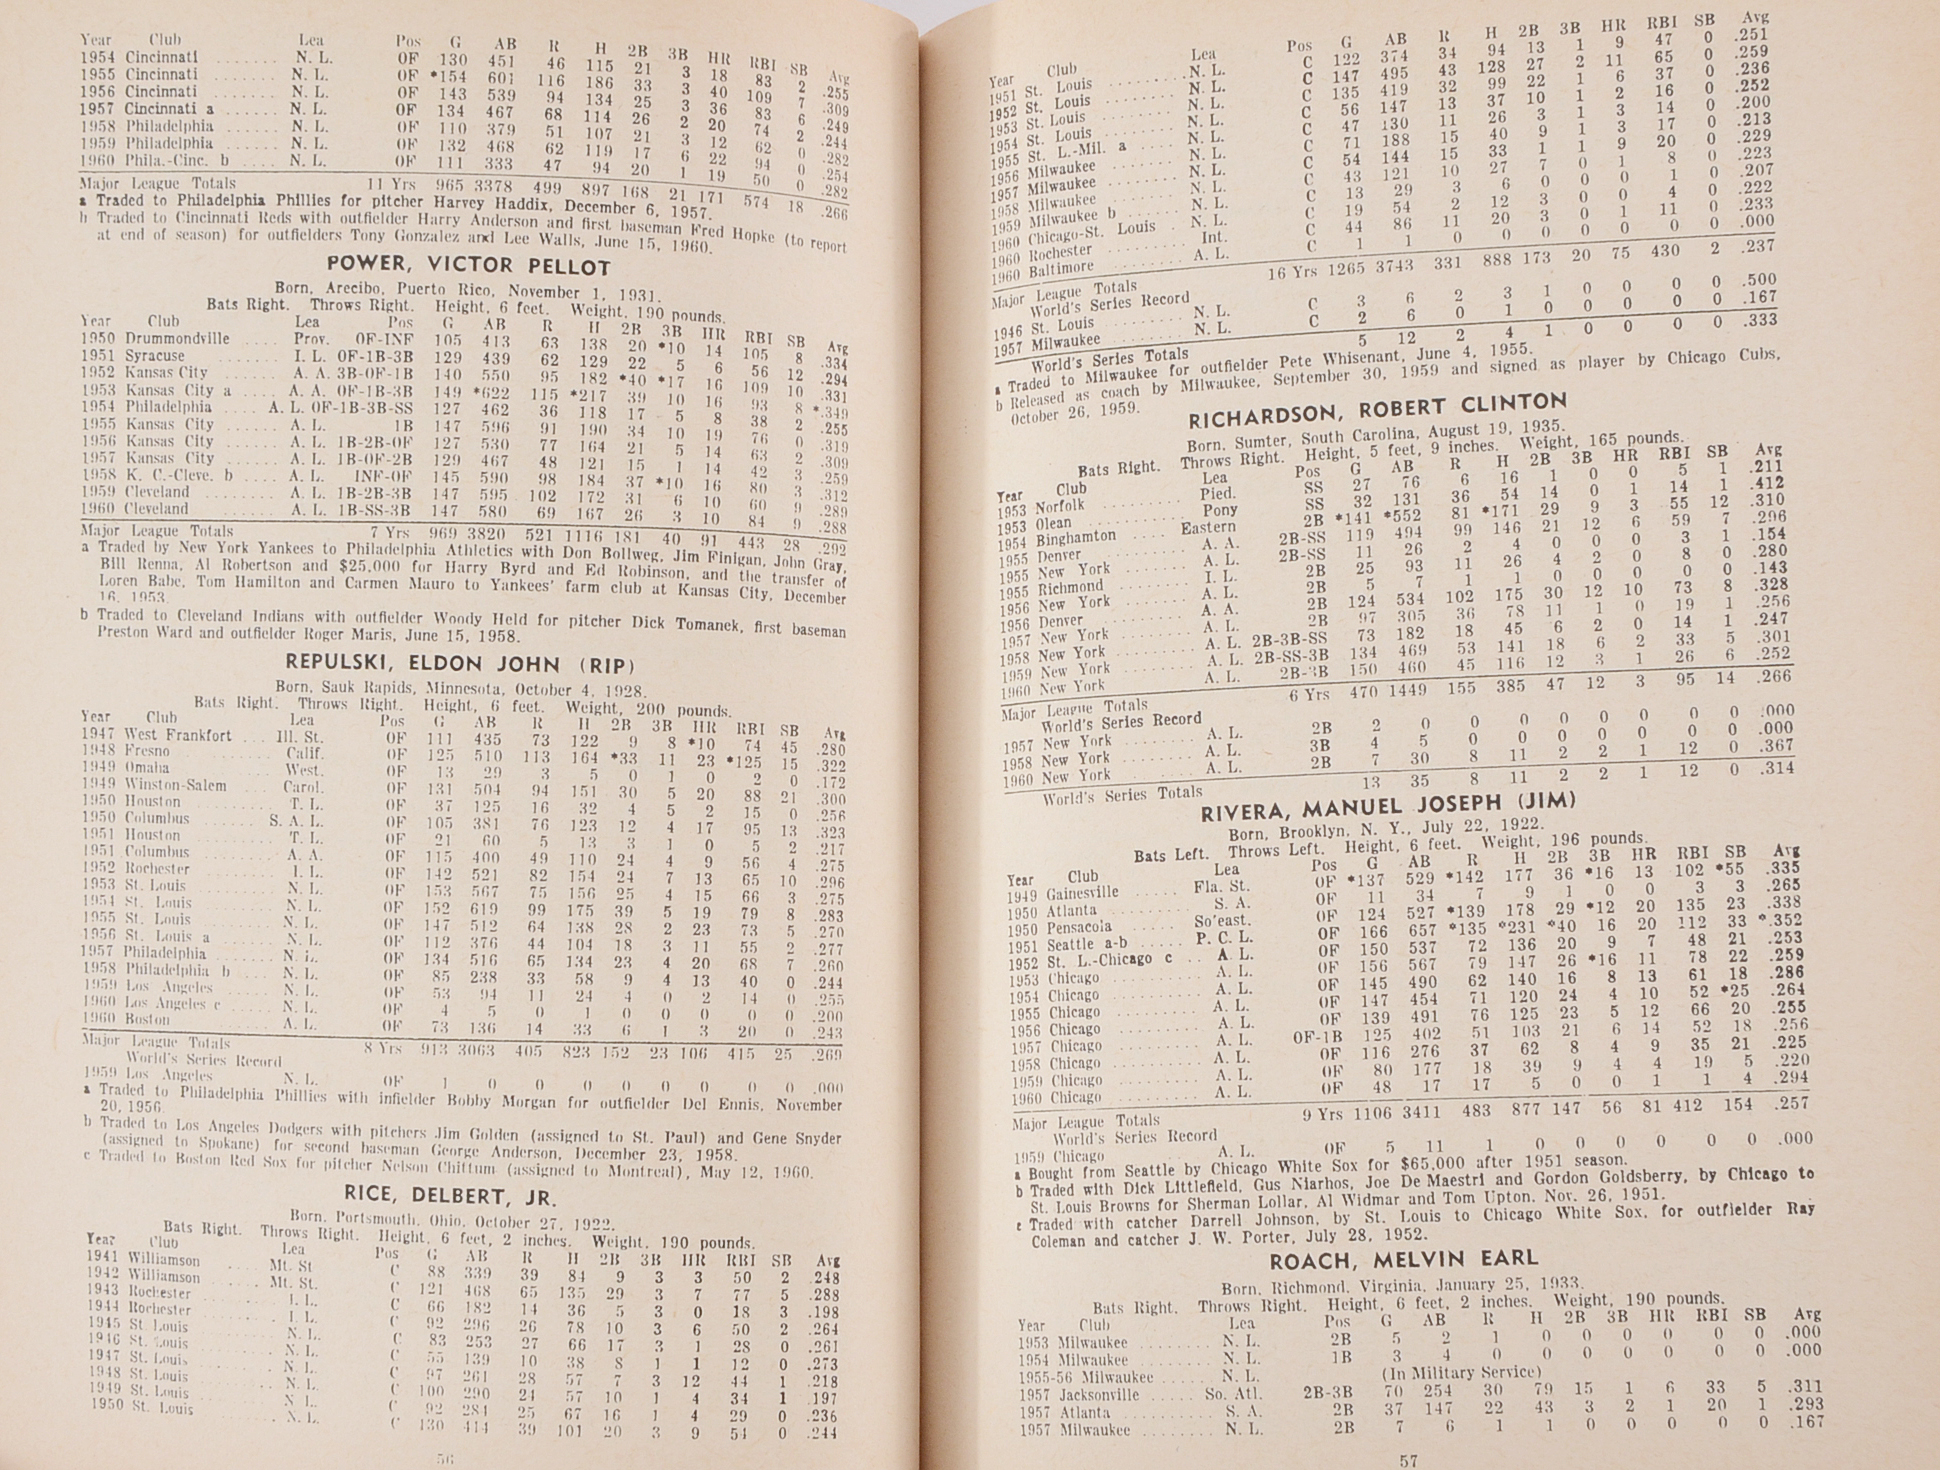 Year Club Lea Pos G AB R H 2B 3B HR RBI SB Avg
1954 Cincinnati ....... N. L. OF 130 451 46 115 21 3 18 83 2 .255
1955 Cincinnati ....... N. L. OF *154 601 116 186 33 3 40 109 7 .309
1956 Cincinnati ....... N. L. OF 143 539 94 134 25 3 36 83 6 .249
1957 Cincinnati a ..... N. L. OF 134 467 68 114 26 2 20 74 2 .244
1958 Philadelphia ..... N. L. OF 110 379 51 107 21 3 12 62 0 .282
1959 Philadelphia ..... N. L. OF 132 468 62 119 17 6 22 94 0 .254
1960 Phila.-Cinc. b .... N. L. OF 111 333 47 94 20 1 19 50 0 .282
Major League Totals 11 Yrs 965 3378 499 897 168 21 171 574 18 .266
a Traded to Philadelphia Phillies for pitcher Harvey Haddix, December 6, 1957.
b Traded to Cincinnati Reds with outfielder Harry Anderson and first baseman Fred Hopke (to report
at end of season) for outfielders Tony Gonzalez and Lee Walls, June 15, 1960.
POWER, VICTOR PELLOT
Born, Arecibo, Puerto Rico, November 1, 1931.
Bats Right. Throws Right. Height, 6 feet. Weight, 190 pounds.
Year Club Lea Pos G AB R H 2B 3B HR RBI SB Avg
1950 Drummondville .... Prov. OF-INF 105 413 63 138 20 *10 14 105 8 .334
1951 Syracuse ....... I. L. OF-1B-3B 129 439 62 129 22 5 6 56 12 .294
1952 Kansas City ...... A. A. 3B-OF-1B 140 550 95 182 *40 *17 16 109 10 .331
1953 Kansas City a .... A. A. OF-1B-3B 149 *622 115 *217 39 10 16 93 8 *.349
1954 Philadelphia .... A. L. OF-1B-3B-SS 127 462 36 118 17 5 8 38 2 .255
1955 Kansas City ...... A. L. 1B 147 596 91 190 34 10 19 76 0 .319
1956 Kansas City ...... A. L. 1B-2B-OF 127 530 77 164 21 5 14 63 2 .309
1957 Kansas City ...... A. L. 1B-OF-2B 129 467 48 121 15 1 14 42 3 .259
1958 K. C.-Cleve. b .... A. L. INF-OF 145 590 98 184 37 *10 16 80 3 .312
1959 Cleveland ........ A. L. 1B-2B-3B 147 595 102 172 31 6 10 60 9 .289
1960 Cleveland ........ A. L. 1B-SS-3B 147 580 69 167 26 3 10 84 9 .288
Major League Totals 7 Yrs 969 3820 521 1116 181 40 91 443 28 .292
a Traded by New York Yankees to Philadelphia Athletics with Don Bollweg, Jim Finigan, John Gray,
Bill Renna, Al Robertson and $25,000 for Harry Byrd and Ed Robinson, and the transfer of
Loren Babe, Tom Hamilton and Carmen Mauro to Yankees' farm club at Kansas City, December
16, 1953.
b Traded to Cleveland Indians with outfielder Woody Held for pitcher Dick Tomanek, first baseman
Preston Ward and outfielder Roger Maris, June 15, 1958.
REPULSKI, ELDON JOHN (RIP)
Born, Sauk Rapids, Minnesota, October 4, 1928.
Bats Right. Throws Right. Height, 6 feet. Weight, 200 pounds.
Year Club Lea Pos G AB R H 2B 3B HR RBI SB Avg
1947 West Frankfort ... Ill. St. OF 111 435 73 122 9 8 *10 74 45 .280
1948 Fresno ........ Calif. OF 125 510 113 164 *33 11 23 *125 15 .322
1949 Omaha ........ West. OF 13 29 3 5 0 1 0 2 0 .172
1949 Winston-Salem .... Carol. OF 131 504 94 151 30 5 20 88 21 .300
1950 Houston ........ T. L. OF 37 125 16 32 4 5 2 15 0 .256
1950 Columbus ...... S. A. L. OF 105 381 76 123 12 4 17 95 13 .323
1951 Houston ........ T. L. OF 21 60 5 13 3 1 0 5 2 .217
1951 Columbus ........ A. A. OF 115 400 49 110 24 4 9 56 4 .275
1952 Rochester ........ I. L. OF 142 521 82 154 24 7 13 65 10 .296
1953 St. Louis ........ N. L. OF 153 567 75 156 25 4 15 66 3 .275
1954 St. Louis ........ N. L. OF 152 619 99 175 39 5 19 79 8 .283
1955 St. Louis ........ N. L. OF 147 512 64 138 28 2 23 73 5 .270
1956 St. Louis a ...... N. L. OF 112 376 44 104 18 3 11 55 2 .277
1957 Philadelphia ..... N. L. OF 134 516 65 134 23 4 20 68 7 .260
1958 Philadelphia b .... N. L. OF 85 238 33 58 9 4 13 40 0 .244
1959 Los Angeles ...... N. L. OF 53 94 11 24 4 0 2 14 0 .255
1960 Los Angeles c .... N. L. OF 4 5 0 1 0 0 0 0 0 .200
1960 Boston ........ A. L. OF 73 136 14 33 6 1 3 20 0 .243
Major League Totals 8 Yrs 913 3063 405 823 152 23 106 415 25 .269
World's Series Record
1959 Los Angeles N. L. OF 1 0 0 0 0 0 0 0 0 .000
a Traded to Philadelphia Phillies with infielder Bobby Morgan for outfielder Del Ennis, November
20, 1956.
b Traded to Los Angeles Dodgers with pitchers Jim Golden (assigned to St. Paul) and Gene Snyder
(assigned to Spokane) for second baseman George Anderson, December 23, 1958.
c Traded to Boston Red Sox for pitcher Nelson Chittum (assigned to Montreal), May 12, 1960.
RICE, DELBERT, JR.
Born, Portsmouth, Ohio, October 27, 1922.
Bats Right. Throws Right. Height, 6 feet, 2 inches. Weight, 190 pounds.
Year Club Lea Pos G AB R H 2B 3B HR RBI SB Avg
1941 Williamson ...... Mt. St C 88 339 39 84 9 3 3 50 2 .248
1942 Williamson ...... Mt. St. C 121 468 65 135 29 3 7 77 5 .288
1943 Rochester ........ I. L. C 66 182 14 36 5 3 0 18 3 .198
1944 Rochester ........ I. L. C 92 296 26 78 10 3 6 50 2 .264
1945 St. Louis ........ N. L. C 83 253 27 66 17 3 1 28 0 .261
1946 St. Louis ........ N. L. C 55 139 10 38 8 1 1 12 0 .273
1947 St. Louis ........ N. L. C 97 261 28 57 7 3 12 44 1 .218
1948 St. Louis ........ N. L. C 100 290 24 57 10 1 4 34 1 .197
1949 St. Louis ........ N. L. C 92 284 25 67 16 1 4 29 0 .236
1950 St. Louis ........ N. L. C 130 414 39 101 20 3 9 54 0 .244
56
Year Club Lea Pos G AB R H 2B 3B HR RBI SB Avg
1951 St. Louis ........ N. L. C 122 374 34 94 13 1 9 47 0 .251
1952 St. Louis ........ N. L. C 147 495 43 128 27 2 11 65 0 .259
1953 St. Louis ........ N. L. C 135 419 32 99 22 1 6 37 0 .236
1954 St. Louis ........ N. L. C 56 147 13 37 10 1 2 16 0 .252
1955 St. L.-Mil. a ...... N. L. C 47 130 11 26 3 1 3 14 0 .200
1956 Milwaukee ........ N. L. C 71 188 15 40 9 1 3 17 0 .213
1957 Milwaukee ........ N. L. C 54 144 15 33 1 1 9 20 0 .229
1958 Milwaukee ........ N. L. C 43 121 10 27 7 0 1 8 0 .223
1959 Milwaukee b ...... N. L. C 13 29 3 6 0 0 0 1 0 .207
1960 Chicago-St. Louis . N. L. C 19 54 2 12 3 0 0 4 0 .222
1960 Rochester ........ Int. C 44 86 11 20 3 0 1 11 0 .233
1960 Baltimore ........ A. L. C 1 1 0 0 0 0 0 0 0 .000
Major League Totals 16 Yrs 1265 3743 331 888 173 20 75 430 2 .237
World's Series Record
1946 St. Louis ........ N. L. C 3 6 2 3 1 0 0 0 0 .500
1957 Milwaukee ........ N. L. C 2 6 0 1 0 0 0 0 0 .167
World's Series Totals 5 12 2 4 1 0 0 0 0 .333
a Traded to Milwaukee for outfielder Pete Whisenant, June 4, 1955.
b Released as coach by Milwaukee, September 30, 1959 and signed as player by Chicago Cubs,
October 26, 1959.
RICHARDSON, ROBERT CLINTON
Born, Sumter, South Carolina, August 19, 1935.
Bats Right. Throws Right. Height, 5 feet, 9 inches. Weight, 165 pounds.
Year Club Lea Pos G AB R H 2B 3B HR RBI SB Avg
1953 Norfolk ........ Pied. SS 27 76 6 16 1 0 0 5 1 .211
1953 Olean ........ Pony SS 32 131 36 54 14 0 1 14 1 .412
1954 Binghamton .... Eastern 2B *141 *552 81 *171 29 9 3 55 12 .310
1955 Denver ........ A. A. 2B-SS 119 494 99 146 21 12 6 59 7 .296
1955 New York ........ A. L. 2B-SS 11 26 2 4 0 0 0 3 1 .154
1955 Richmond ........ I. L. 2B 25 93 11 26 4 2 0 8 0 .280
1956 New York ........ A. L. 2B 5 7 1 1 0 0 0 0 0 .143
1956 Denver ........ A. A. 2B 124 534 102 175 30 12 10 73 8 .328
1957 New York ........ A. L. 2B 97 305 36 78 11 1 0 19 1 .256
1958 New York ........ A. L. 2B-3B-SS 73 182 18 45 6 2 0 14 1 .247
1959 New York ........ A. L. 2B-SS-3B 134 469 53 141 18 6 2 33 5 .301
1960 New York ........ A. L. 2B-3B 150 460 45 116 12 3 1 26 6 .252
Major League Totals 6 Yrs 470 1449 155 385 47 12 3 95 14 .266
World's Series Record
1957 New York ........ A. L. 2B 2 0 0 0 0 0 0 0 0 .000
1958 New York ........ A. L. 3B 4 5 0 0 0 0 0 0 0 .000
1960 New York ........ A. L. 2B 7 30 8 11 2 2 1 12 0 .367
World's Series Totals 13 35 8 11 2 2 1 12 0 .314
RIVERA, MANUEL JOSEPH (JIM)
Born, Brooklyn, N. Y., July 22, 1922.
Bats Left. Throws Left. Height, 6 feet. Weight, 196 pounds.
Year Club Lea Pos G AB R H 2B 3B HR RBI SB Avg
1949 Gainesville ..... Fla. St. OF *137 529 *142 177 36 *16 13 102 *55 .335
1950 Atlanta ........ S. A. OF 11 34 7 9 1 0 0 3 3 .265
1950 Pensacola ...... So'east. OF 124 527 *139 178 29 *12 20 135 23 .338
1951 Seattle a-b ..... P. C. L. OF 166 657 *135 *231 *40 16 20 112 33 *.352
1952 St. L.-Chicago c .. A L. OF 150 537 72 136 20 9 7 48 21 .253
1953 Chicago ........ A. L. OF 156 567 79 147 26 *16 11 78 22 .259
1954 Chicago ........ A. L. OF 145 490 62 140 16 8 13 61 18 .286
1955 Chicago ........ A. L. OF 147 454 71 120 24 4 10 52 *25 .264
1956 Chicago ........ A. L. OF 139 491 76 125 23 5 12 66 20 .255
1957 Chicago ........ A. L. OF-1B 125 402 51 103 21 6 14 52 18 .256
1958 Chicago ........ A. L. OF 116 276 37 62 8 4 9 35 21 .225
1959 Chicago ........ A. L. OF 80 177 18 39 9 4 4 19 5 .220
1960 Chicago ........ A. L. OF 48 17 17 5 0 0 1 1 4 .294
Major League Totals 9 Yrs 1106 3411 483 877 147 56 81 412 154 .257
World's Series Record
1959 Chicago A. L. OF 5 11 1 0 0 0 0 0 0 .000
a Bought from Seattle by Chicago White Sox for $65,000 after 1951 season.
b Traded with Dick Littlefield, Gus Niarhos, Joe De Maestri and Gordon Goldsberry, by Chicago to
St. Louis Browns for Sherman Lollar, Al Widmar and Tom Upton, Nov. 26, 1951.
c Traded with catcher Darrell Johnson, by St. Louis to Chicago White Sox, for outfielder Ray
Coleman and catcher J. W. Porter, July 28, 1952.
ROACH, MELVIN EARL
Born, Richmond, Virginia, January 25, 1933.
Bats Right. Throws Right. Height, 6 feet, 2 inches. Weight, 190 pounds.
Year Club Lea Pos G AB R H 2B 3B HR RBI SB Avg
1953 Milwaukee ........ N. L. 2B 5 2 1 0 0 0 0 0 0 .000
1954 Milwaukee ........ N. L. 1B 3 4 0 0 0 0 0 0 0 .000
1955-56 Milwaukee ..... N. L. (In Military Service)
1957 Jacksonville ..... So. Atl. 2B-3B 70 254 30 79 15 1 6 33 5 .311
1957 Atlanta ........ S. A. 2B 37 147 22 43 3 2 1 20 1 .293
1957 Milwaukee ........ N. L. 2B 7 6 1 1 0 0 0 0 0 .167
57